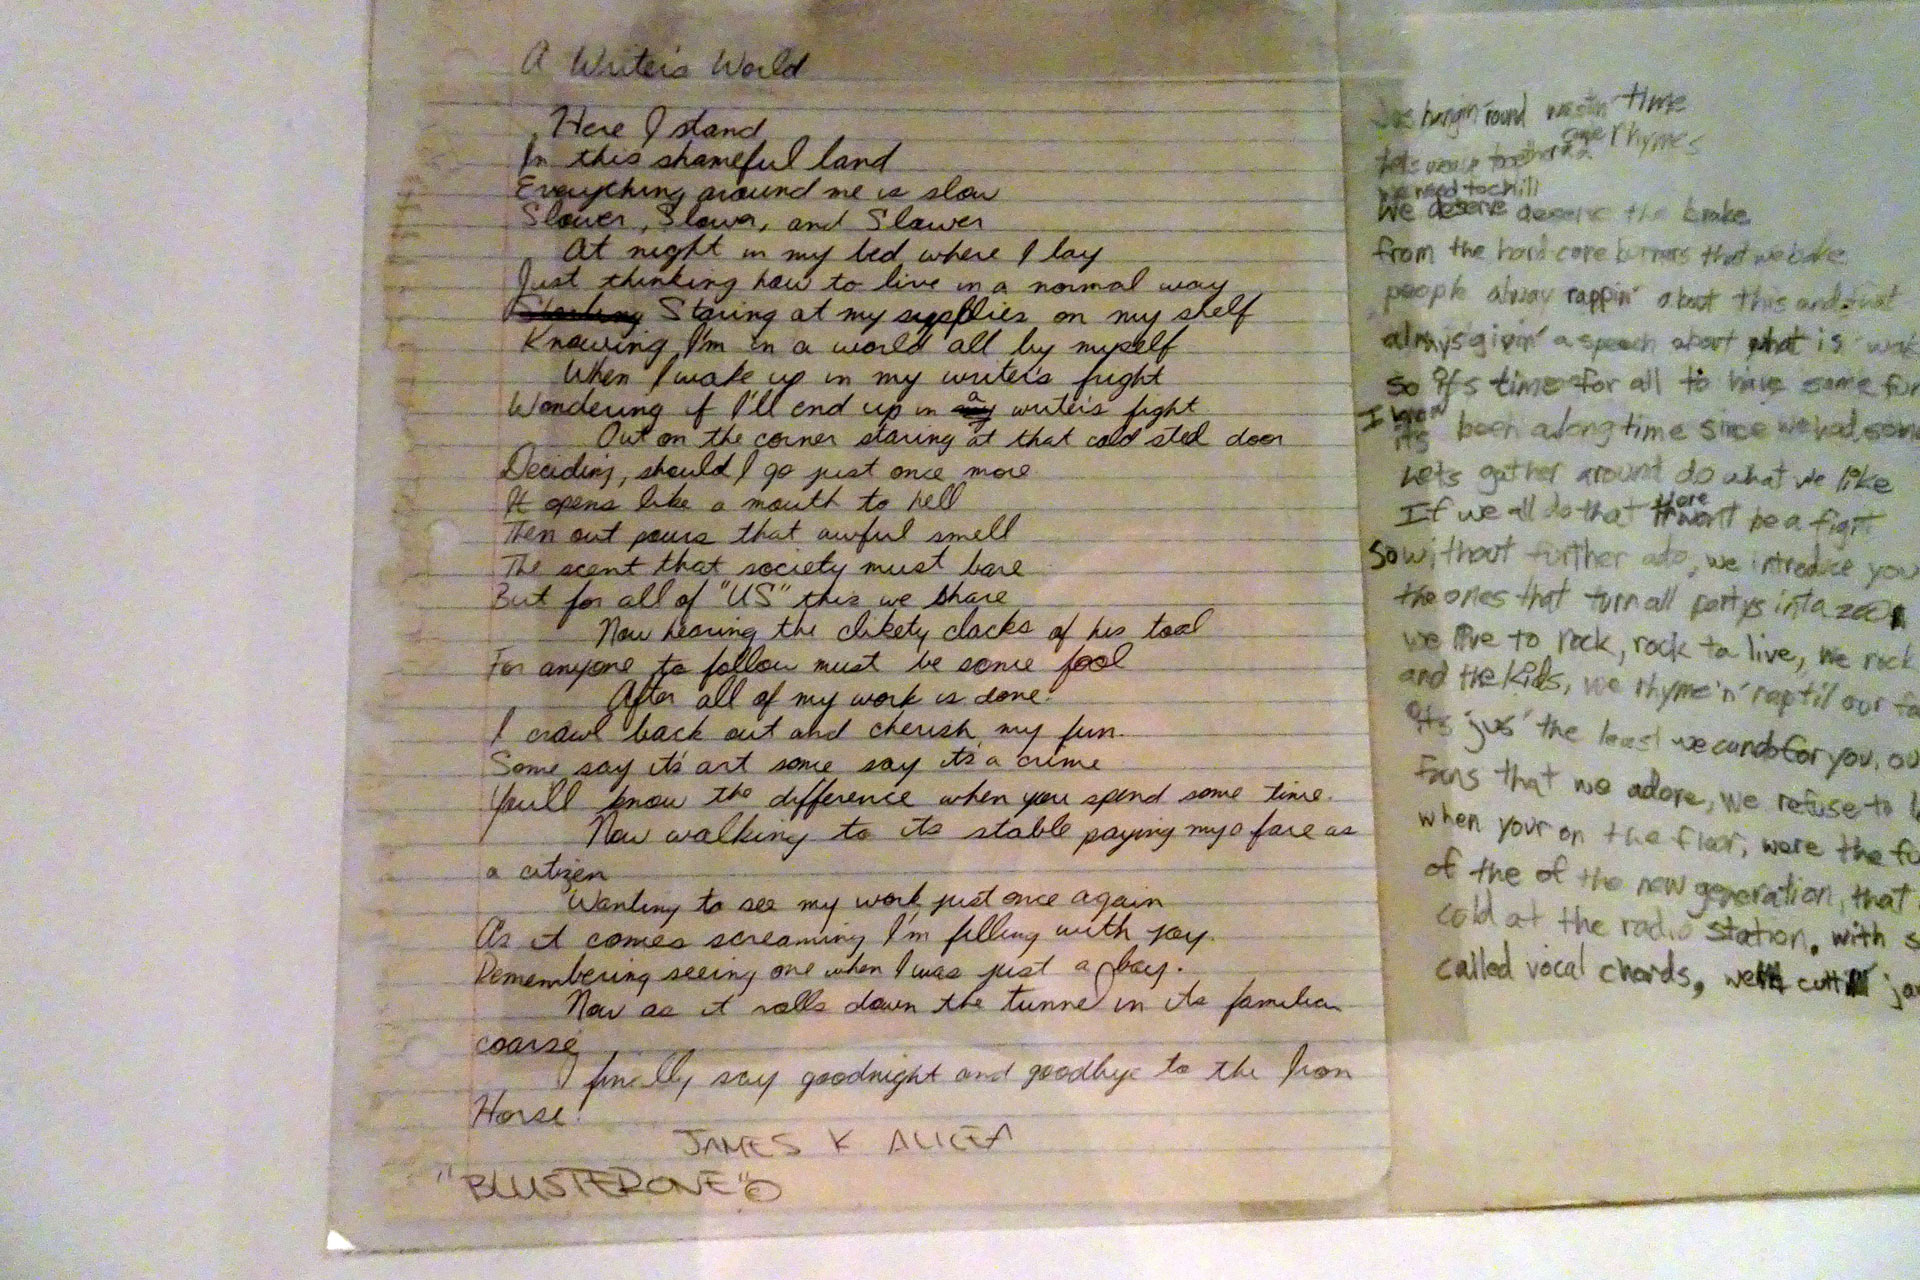 A Writer's World
Here I stand
In this shameful land
Everything around me is slow
Slower, Slower, and Slower
At night in my bed where I lay
Just thinking how to live in a normal way
Staring at my supplies on my shelf
Knowing I'm in a world all by myself
When I wake up in my writer's fright
Wondering if I'll end up in a writer's fight
Out on the corner staring at that cold steel door
Deciding, should I go just once more
It opens like a mouth to hell
Then out pours that awful smell
The scent that society must bare
But for all of "US" this we share
Now hearing the clikety clacks of his tool
For anyone to follow must be some fool
After all of my work is done.
I crawl back out and cherish my fun.
Some say it's art some say it's a crime
You'll know the difference when you spend some time.
Now walking to its stable paying my fare as
a citizen
Wanting to see my work just once again
As it comes screaming I'm filling with joy.
Remembering seeing one when I was just a boy.
Now as it rolls down the tunnel in its familiar
coarse
I finally say goodnight and goodbye to the Iron
Horse!
JAMES K ALICEA
"BLUSTERONE" ©
Jus hangin' round wastin' time
rhymes
we need to chill
We deserve deserve the brake
from the hard core burners that we bake
people alway rappin' about this and that
always givin' a speech about what is
so it's time for all to have some fun
I know
its been a long time since we had some
Lets gather around do what we like
If we all do that there wont be a fight
So without further ado, we introduce you
the ones that turn all partys inta zoo
we live to rock, rock to live, we rock
and the kids, we rhyme 'n' rap til our
its jus' the least we can do for you, ou
Fans that we adore, we refuse to
when your on the floor, were the fu
of the of the new generation, that
cold at the radio station. with s
called vocal chords, we'll cut ja